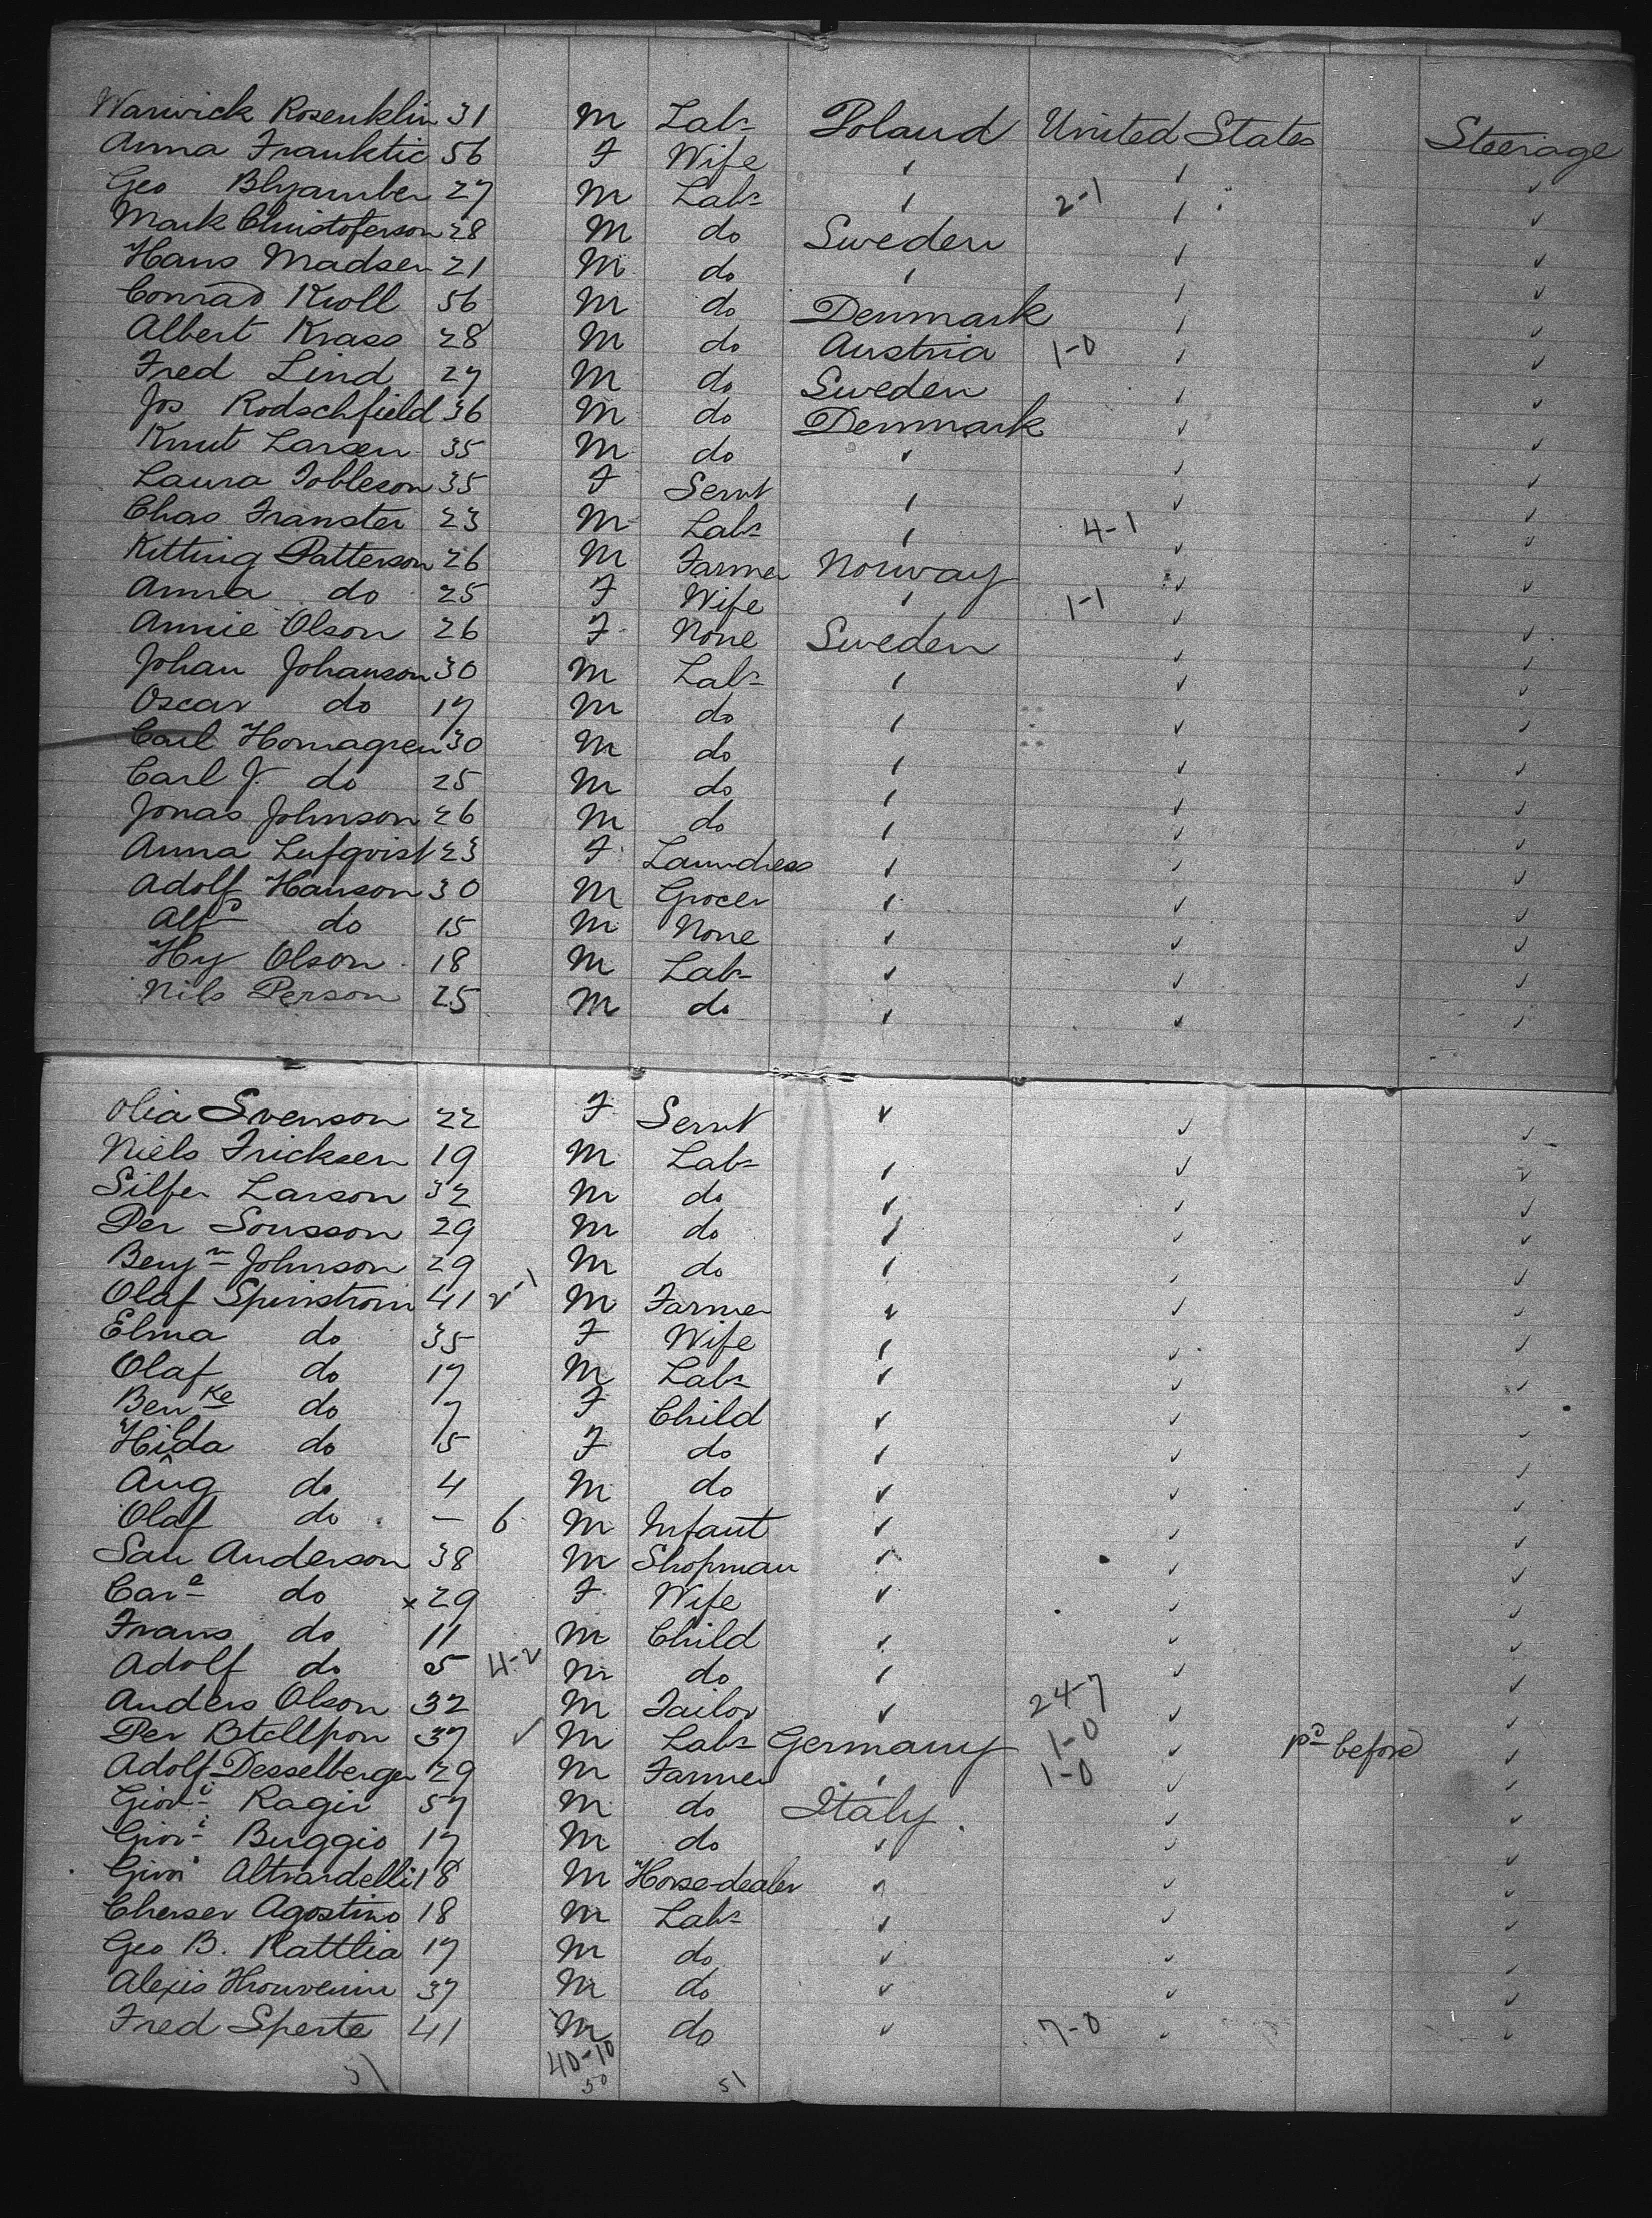 Warwick Rosenklin 31 M Labr Poland United States Steerage
Anna Franktic 56 F Wife
Geo Blyamber 27 M Labr 2-1
Mark Christoferson 28 M do Sweden
Hans Madsen 21 M do
Conrad Kroll 56 M do Denmark
Albert Krass 28 M do Austria 1-0
Fred Lind 27 M do Sweden
Jos Rodschfield 36 M do Denmark
Knut Larsen 35 M do
Laura Tobleson 35 F Servt
Chas Franster 23 M Labr 4-1
Kitting Patterson 26 M Farmer Norway
Anna do 25 F Wife 1-1
Annie Olson 26 F None Sweden
Johan Johanson 30 M Labr
Oscar do 17 M do
Carl Homagren 30 M do
Carl J. do 25 M do
Jonas Johnson 26 M do
Anna Lufqvist 23 F Laundress
Adolf Hanson 30 M Grocer
Alfd do 15 M None
Hy Olson 18 M Labr
Nils Person 25 M do
Olia Svenson 22 F Servt
Niels Fricksen 19 M Labr
Silfer Larson 32 M do
Per Sousson 29 M do
Benjn Johnson 29 M do
Olaf Spinstrom 41 M Farmer
Elma do 35 F Wife
Olaf do 17 M Labr
Benke do 7 F Child
Hilda do 5 F do
Aug do 4 M do
Olaf do — 6 M Infant
San Anderson 38 M Shopman
Care do x 29 F Wife
Frans do 11 M Child
Adolf do 5 4-2 M do
Anders Olson 32 M Tailor 24-7
Per Btellpon 37 ✓ M Labr Germany 1-0 pd before
Adolf Desselberger 29 M Farmer 1-0
Giovi Ragir 57 M do Italy
Giovi Buggio 17 M do
Giovi Altvardelli 18 M Horse-dealer
Cherser Agostino 18 M Labr
Geo B. Rattlia 17 M do
Alexis 37 M do
Fred Sperte 41 M do 7-0
40-10
51 50 51